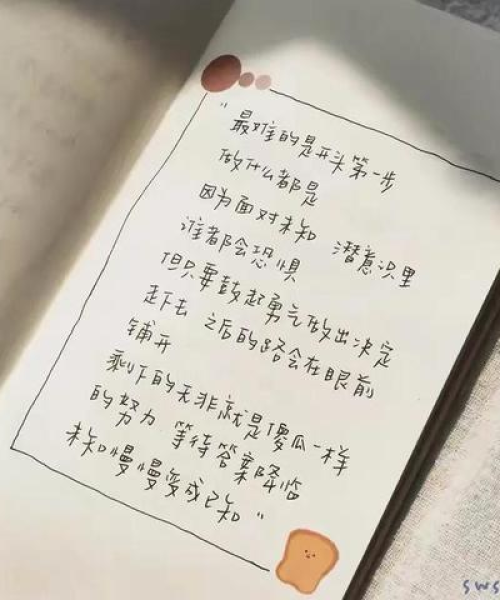 "最难的是开头第一步
做什么都是
因为面对未知 潜意识里
谁都会恐惧
但只要鼓起勇气做出决定
走下去 之后的路会在眼前
铺开
剩下的无非就是傻瓜一样
的努力 等待答案降临
未知慢慢变成已知"
SWS